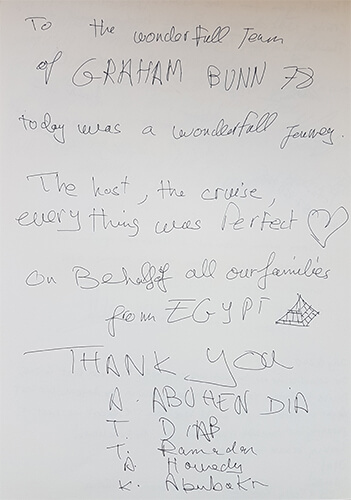 To the wonderfull Team
of GRAHAM BUNN 78
today was a wonderfull Jenney.
The host, the cruise,
everything was Perfect
on Behalf all our families
from EGYPT
THANK you
A. ABUHEN DIA
T. DIAB
T. Ramadan
A. Hamedy
K. Abubakr